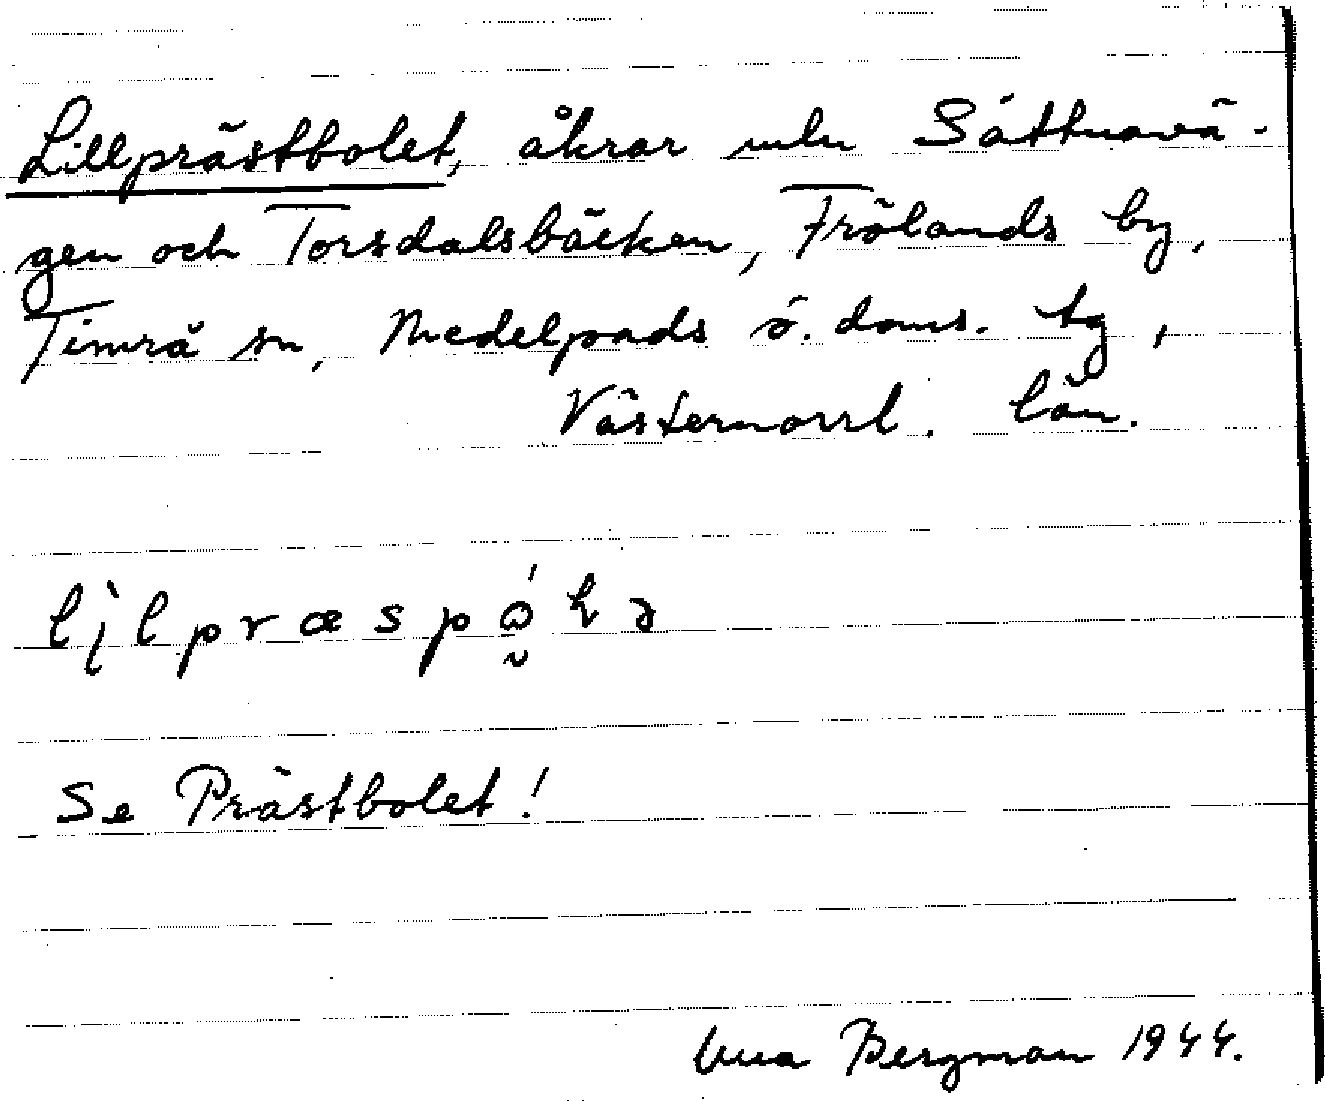 Lillprästbolet, åkrar mln Sättnavä-
gen och Torsdalsbäcken, Frölands by,
Timrå sn, Medelpads ö. doms. tg,
Västernorrl. län.
Se Prästbolet!
Bergman 1944.